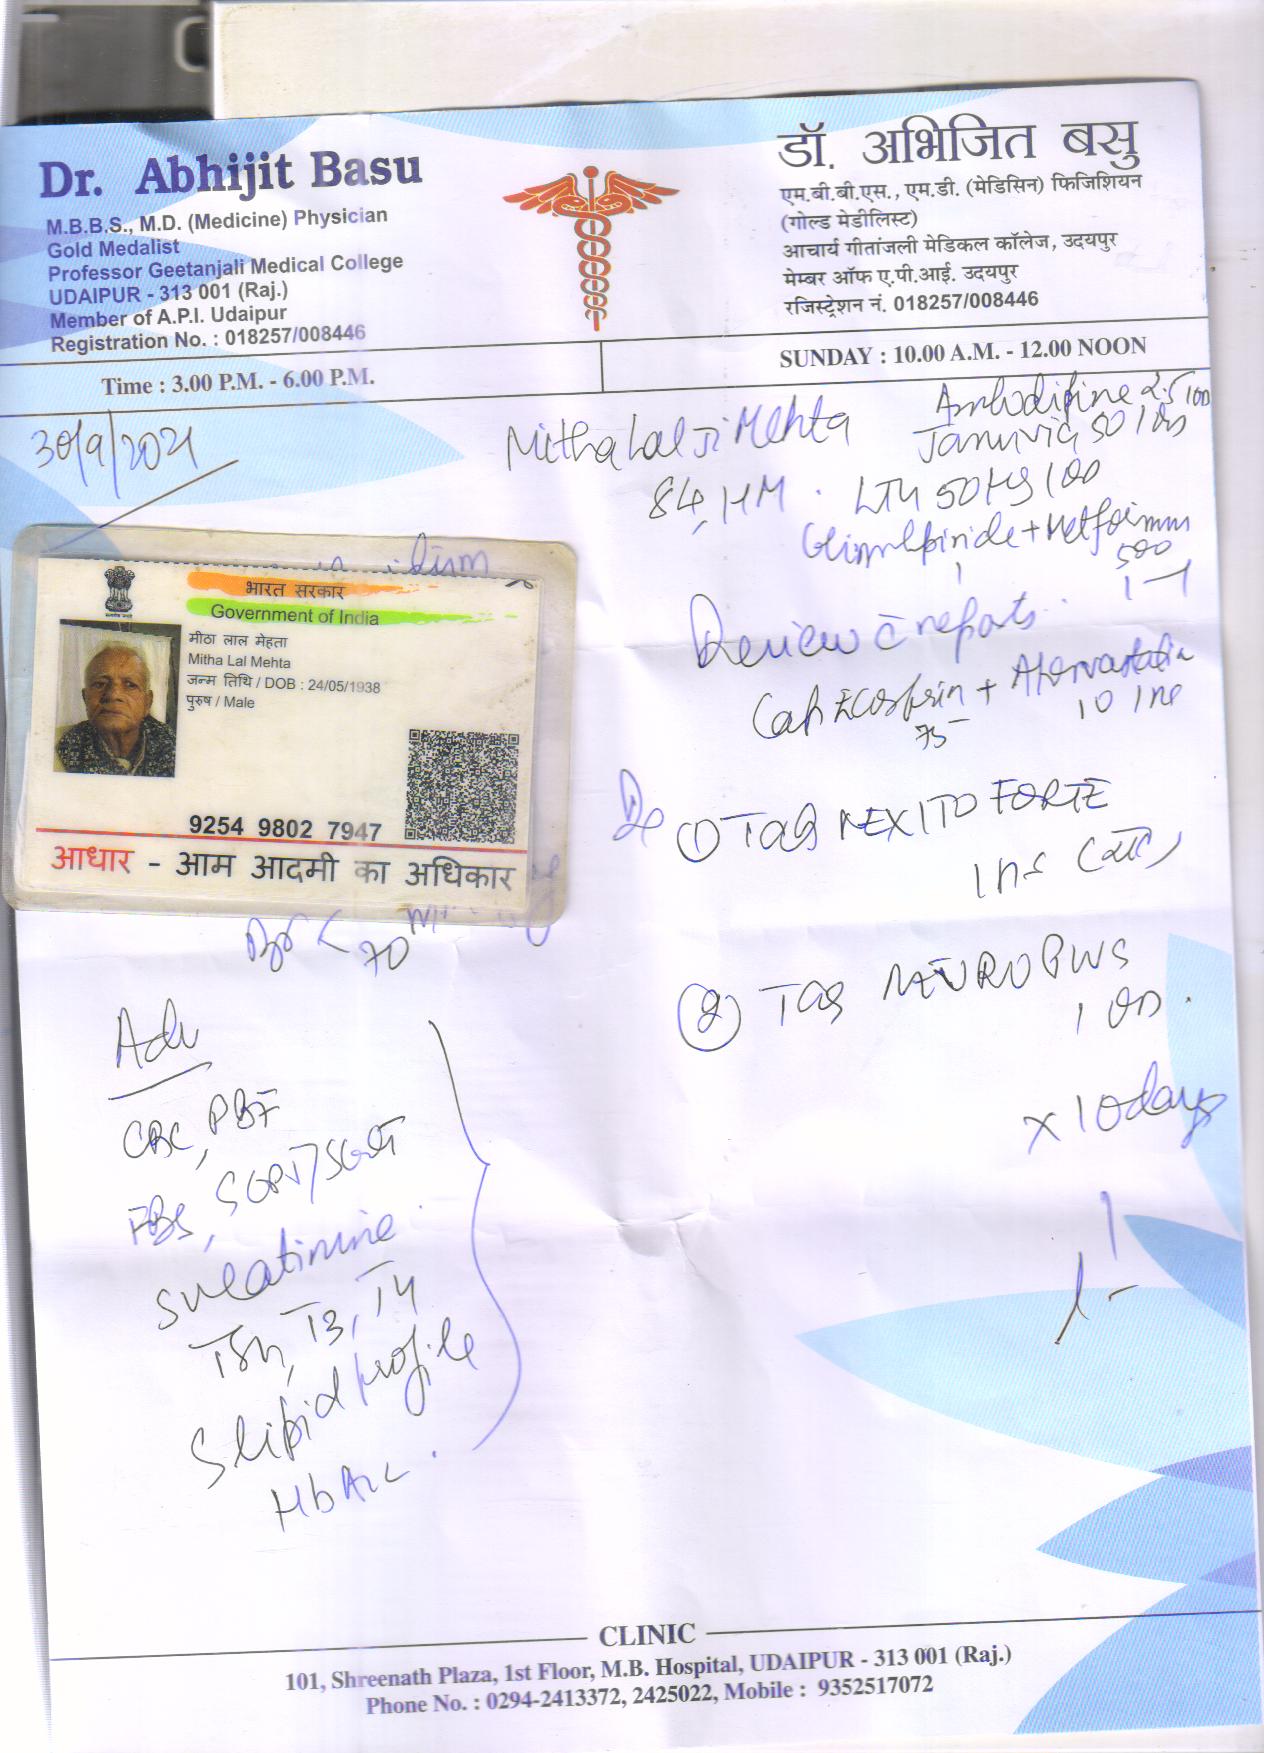 Dr. Abhijit Basu
M.B.B.S., M.D. (Medicine) Physician
Gold Medalist
Professor Geetanjali Medical College
UDAIPUR - 313 001 (Raj.)
Member of A.P.I. Udaipur
Registration No. : 018257/008446
डॉ. अभिजित बसु
एम.बी.बी.एस., एम.डी. (मेडिसिन) फिजिशियन
(गोल्ड मेडीलिस्ट)
आचार्य गीतांजली मेडिकल कॉलेज, उदयपुर
मेम्बर ऑफ ए.पी.आई. उदयपुर
रजिस्ट्रेशन नं. 018257/008446
Time : 3.00 P.M. - 6.00 P.M.
SUNDAY : 10.00 A.M. - 12.00 NOON
30/9/2021
Mitha Lal Ji Mehta
84,
Amlodifine 2.5 1OD
Januvia 50
50
Glimepiride + Metformin
500
1
1-1
Review c reports.
Cap Ecosprin + Atorvastatin
75
10
भारत सरकार
Government of India
मीठा लाल मेहता
Mitha Lal Mehta
जन्म तिथि / DOB : 24/05/1938
पुरुष / Male
9254 9802 7947
आधार - आम आदमी का अधिकार
70
Rx
(1) Tab NEXITO FORTE
(2) Tab NEURO
1 OD.
x 10 days
Adv
CBC, PBF
FBS, SGPT/SGOT
S creatinine.
TSH, T3, T4
S lipid profile
HbA1c.
CLINIC
101, Shreenath Plaza, 1st Floor, M.B. Hospital, UDAIPUR - 313 001 (Raj.)
Phone No. : 0294-2413372, 2425022, Mobile : 9352517072